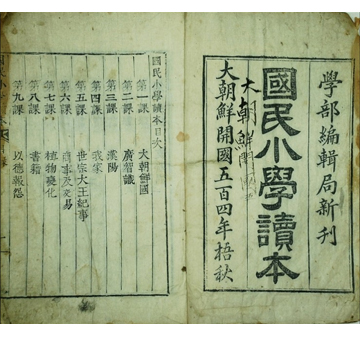 學部編輯局新刊
國民小學讀本
大朝鮮開國五百四年梧秋
大朝鮮
國民小學讀本目次
第一課 大朝鮮國
第二課 廣智識
第三課 漢陽
第四課 我家
第五課 世宗大王紀事
第六課 商事及交易
第七課 植物變化
第八課 書籍
第九課 以德報怨